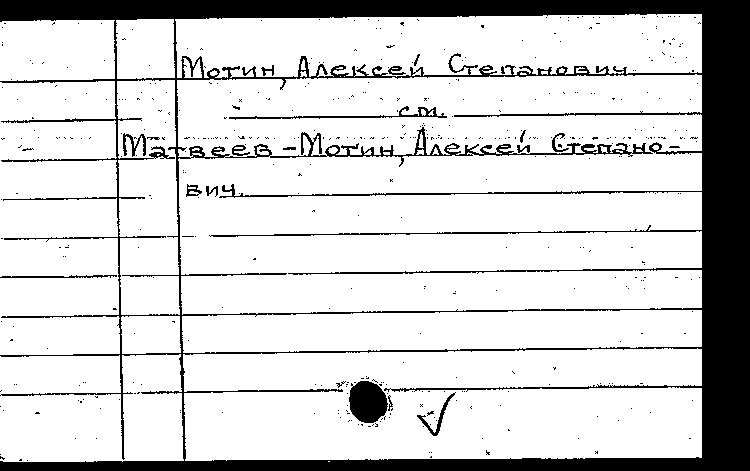 Мотин, Алексей Степанович.
см.
Матвеев-Мотин, Алексей Степано-
вич.